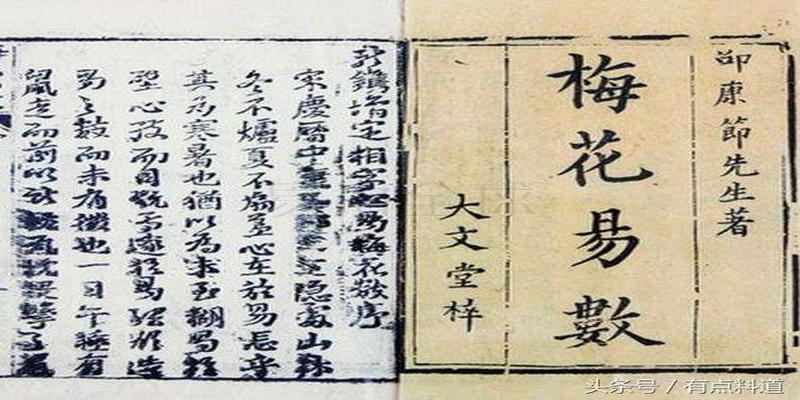 邵康節先生著
梅花易數
大文堂梓
新鐫增定相字心易梅花數序
宋慶曆中隱處山林
冬不爐夏不扇蓋心在於易忘乎
其為寒暑也猶以為未至糊易於
壁心致而目玩焉邃於易理欲造
易之數而未有徵也一日午睡有
鼠走而前以所枕瓦枕擊之
头条号 / 有点料道